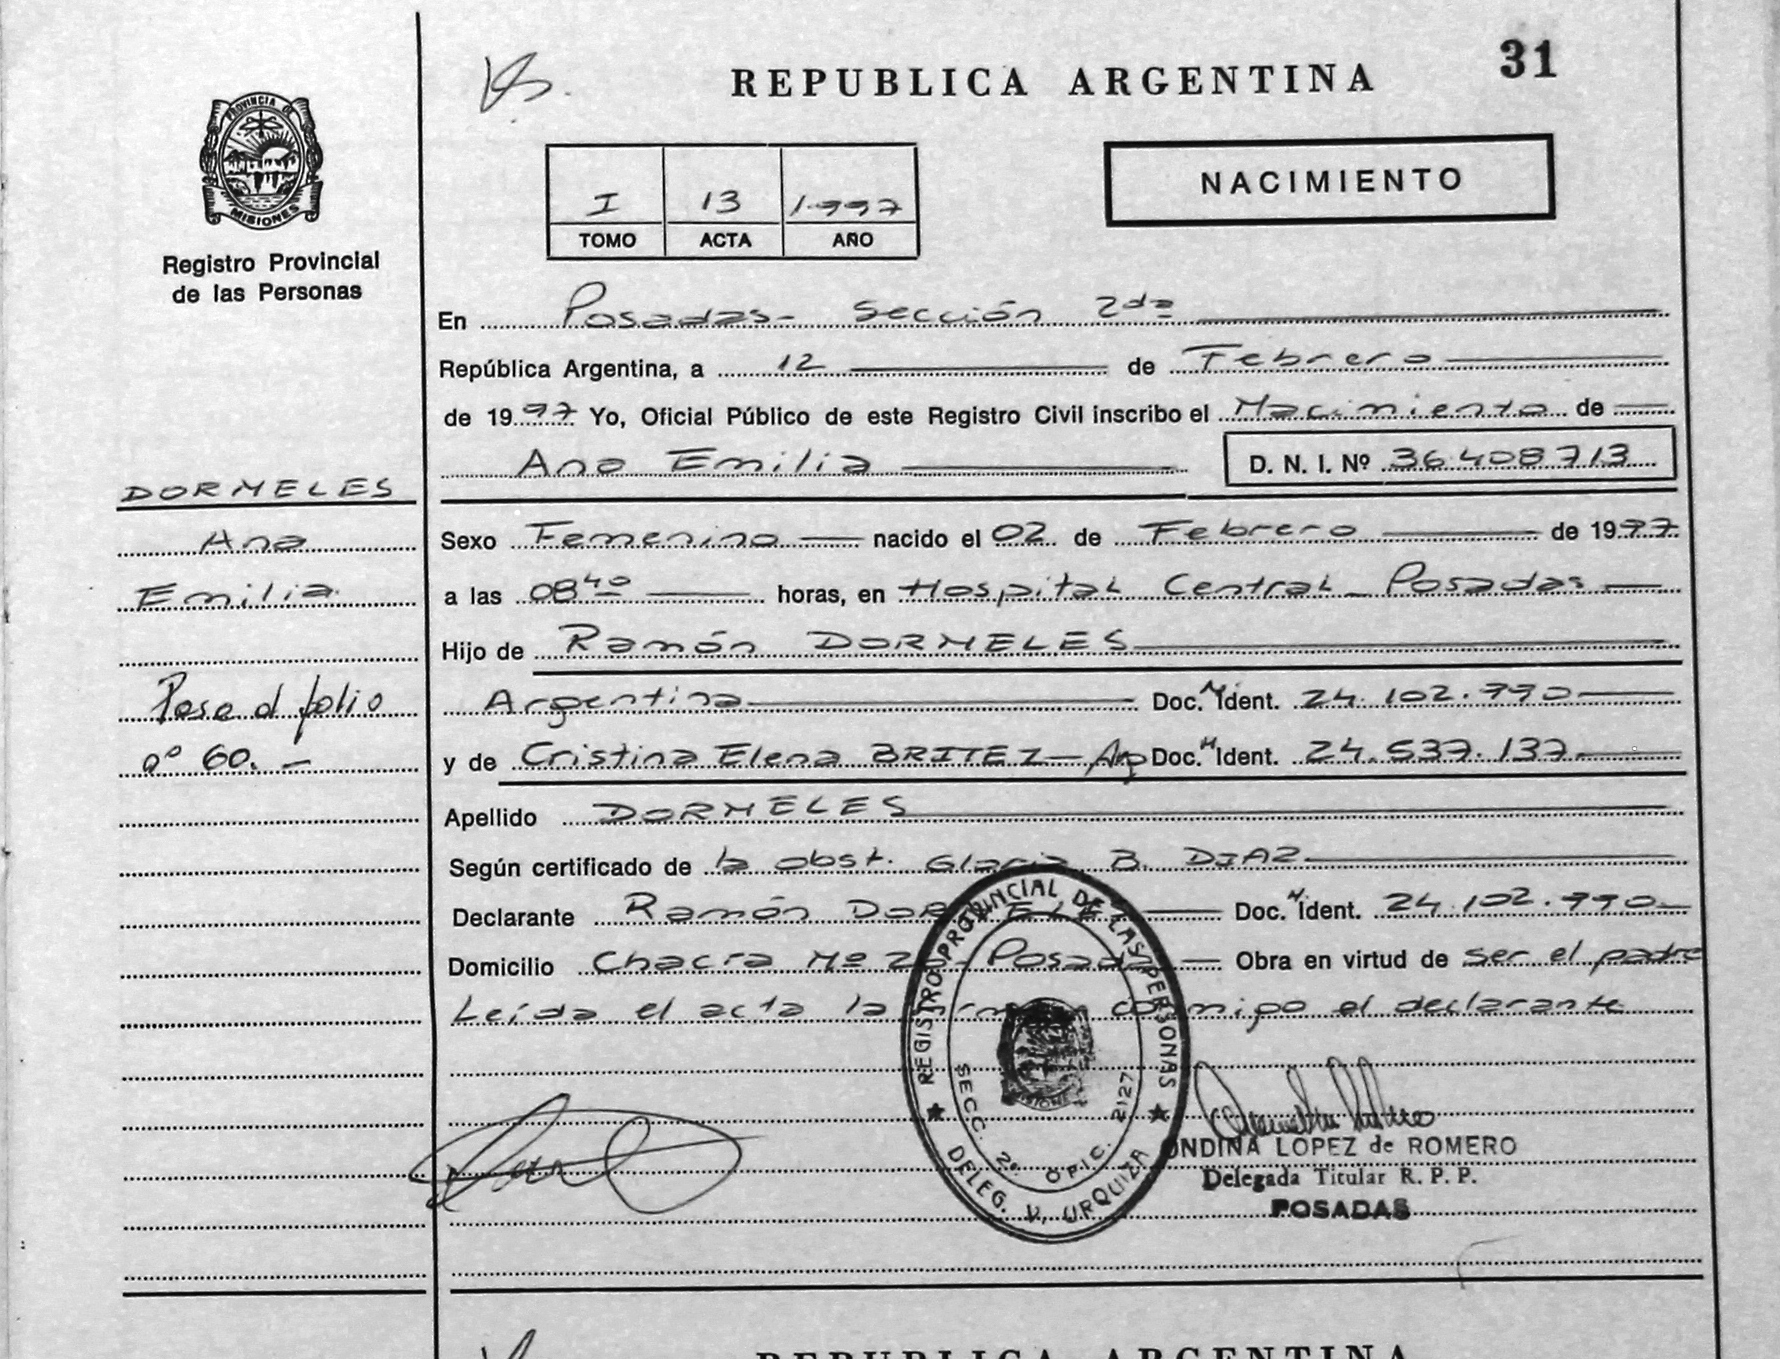 31
REPUBLICA ARGENTINA
PROVINCIA DE
MISIONES
Registro Provincial
de las Personas
NACIMIENTO
I 13 1997
TOMO ACTA AÑO
En Posadas - Sección 2da
República Argentina, a 12 de Febrero
de 1997 Yo, Oficial Público de este Registro Civil inscribo el Nacimiento de
Ana Emilia D. N. I. Nº 36.408713
DORNELES
Ana
Emilia
Sexo Femenino nacido el 02 de Febrero de 1997
a las 08 40 horas, en Hospital Central - Posadas
Hijo de Ramón DORNELES
Argentina Doc. N Ident. 24.102.990
Pase al folio
nº 60. -
y de Cristina Elena BRITEZ - Arg Doc. N Ident. 24.537.137
Apellido DORNELES
Según certificado de la obst. Gloria B. DIAZ
Declarante Ramón DORNELES Doc. N Ident. 24.102.990
Domicilio Chacra Nº 2 - Posadas Obra en virtud de ser el padre
Leída el acta la firma conmigo el declarante
REGISTRO PROVINCIAL DE LAS PERSONAS
SECC. 2º OFIC. 2127
DELEG. V. URQUIZA
MISIONES
ONDINA LOPEZ de ROMERO
Delegada Titular R. P. P.
POSADAS
REPUBLICA ARGENTINA